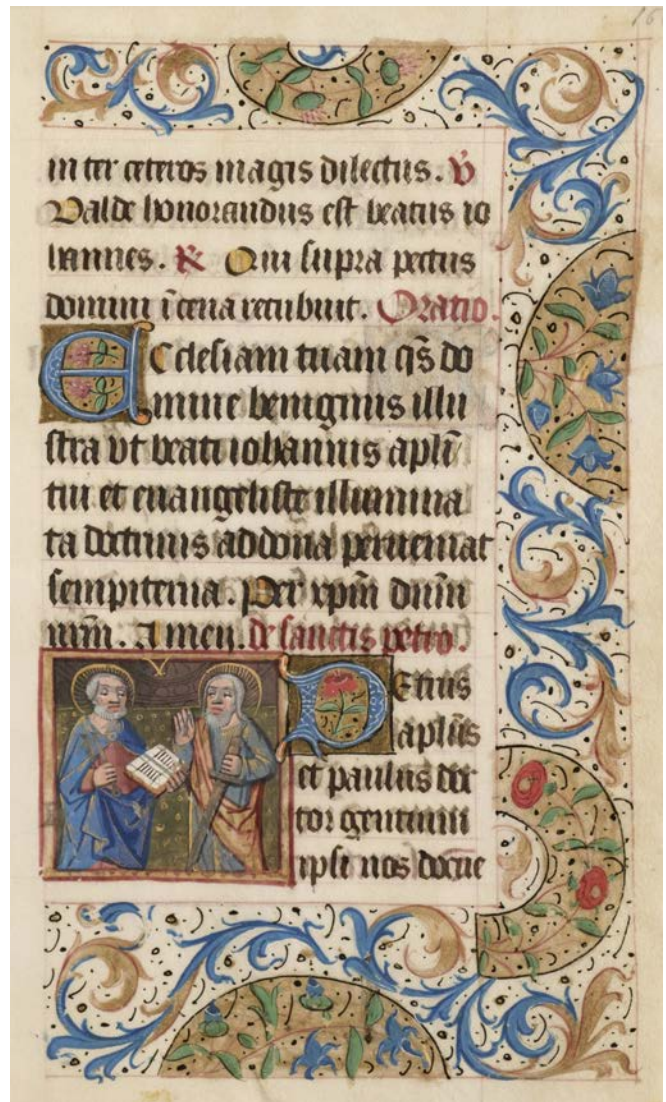 16
in ter ceteros magis dilectus. V̊
Valde honorandus est beatus io
hannes. R Qui supra pectus
domini ī cena recubuit. Oratio.
Ecclesiam tuam q̄s do
mine benignus illu
stra vt beati iohannis apl̄i
tui et euangeliste illumina
ta doctrinis ad dona perueniat
sempiterna. Per xp̄m dn̄m
nr̄m. Amen. de sanctis petro.
Petrus
apl̄us
et paulus doc
tor gentium
ipsi nos docue